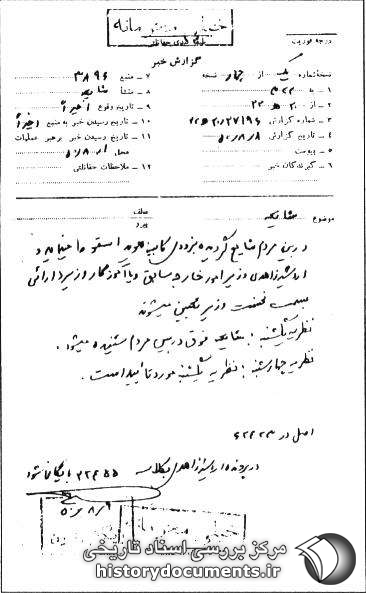 خیلی محرمانه
درجه فوریت
طبقه بندی حفاظتی
گزارش خبر
نسخه شماره یک از چهار نسخه
۱ - به ۳۲۲
۲ - از ۲۰ ه ۲۲
۳ - شماره گزارش
۴ - تاریخ گزارش ۵۰/۸/۸
۵ - پیوست
۶ - گیرندگان خبر
۷ - منبع ۳۸۹۶
۸ - منشأ شایعه
۹ - تاریخ وقوع اخیراً
۱۰ - تاریخ رسیدن خبر به منبع اخیراً
۱۱ - تاریخ رسیدن خبر به رهبر عملیات
محل ۵۰/۸
۱۲ - ملاحظات حفاظتی
موضوع شایعه
عطف
پیرو
در بین مردم شایع گردیده بزودی کابینه هویدا سقوط مینماید و
اردشیر زاهدی وزیر امور خارجه سابق و یا آموزگار وزیر دارائی
بسمت نخست وزیر تعیین میشوند
نظریه یکشنبه : شایعه فوق در بین مردم شنیده میشود .
نظریه چهارشنبه : نظریه یکشنبه مورد تأیید است .
اصل در ۶۲۴۲۳
در پرونده اردشیر زاهدی بکلاسه ۲۲۶۵۵ بایگانی شود
۵۰/۸/۹
خیلی محرمانه
مرکز بررسی اسناد تاریخی
historydocuments.ir